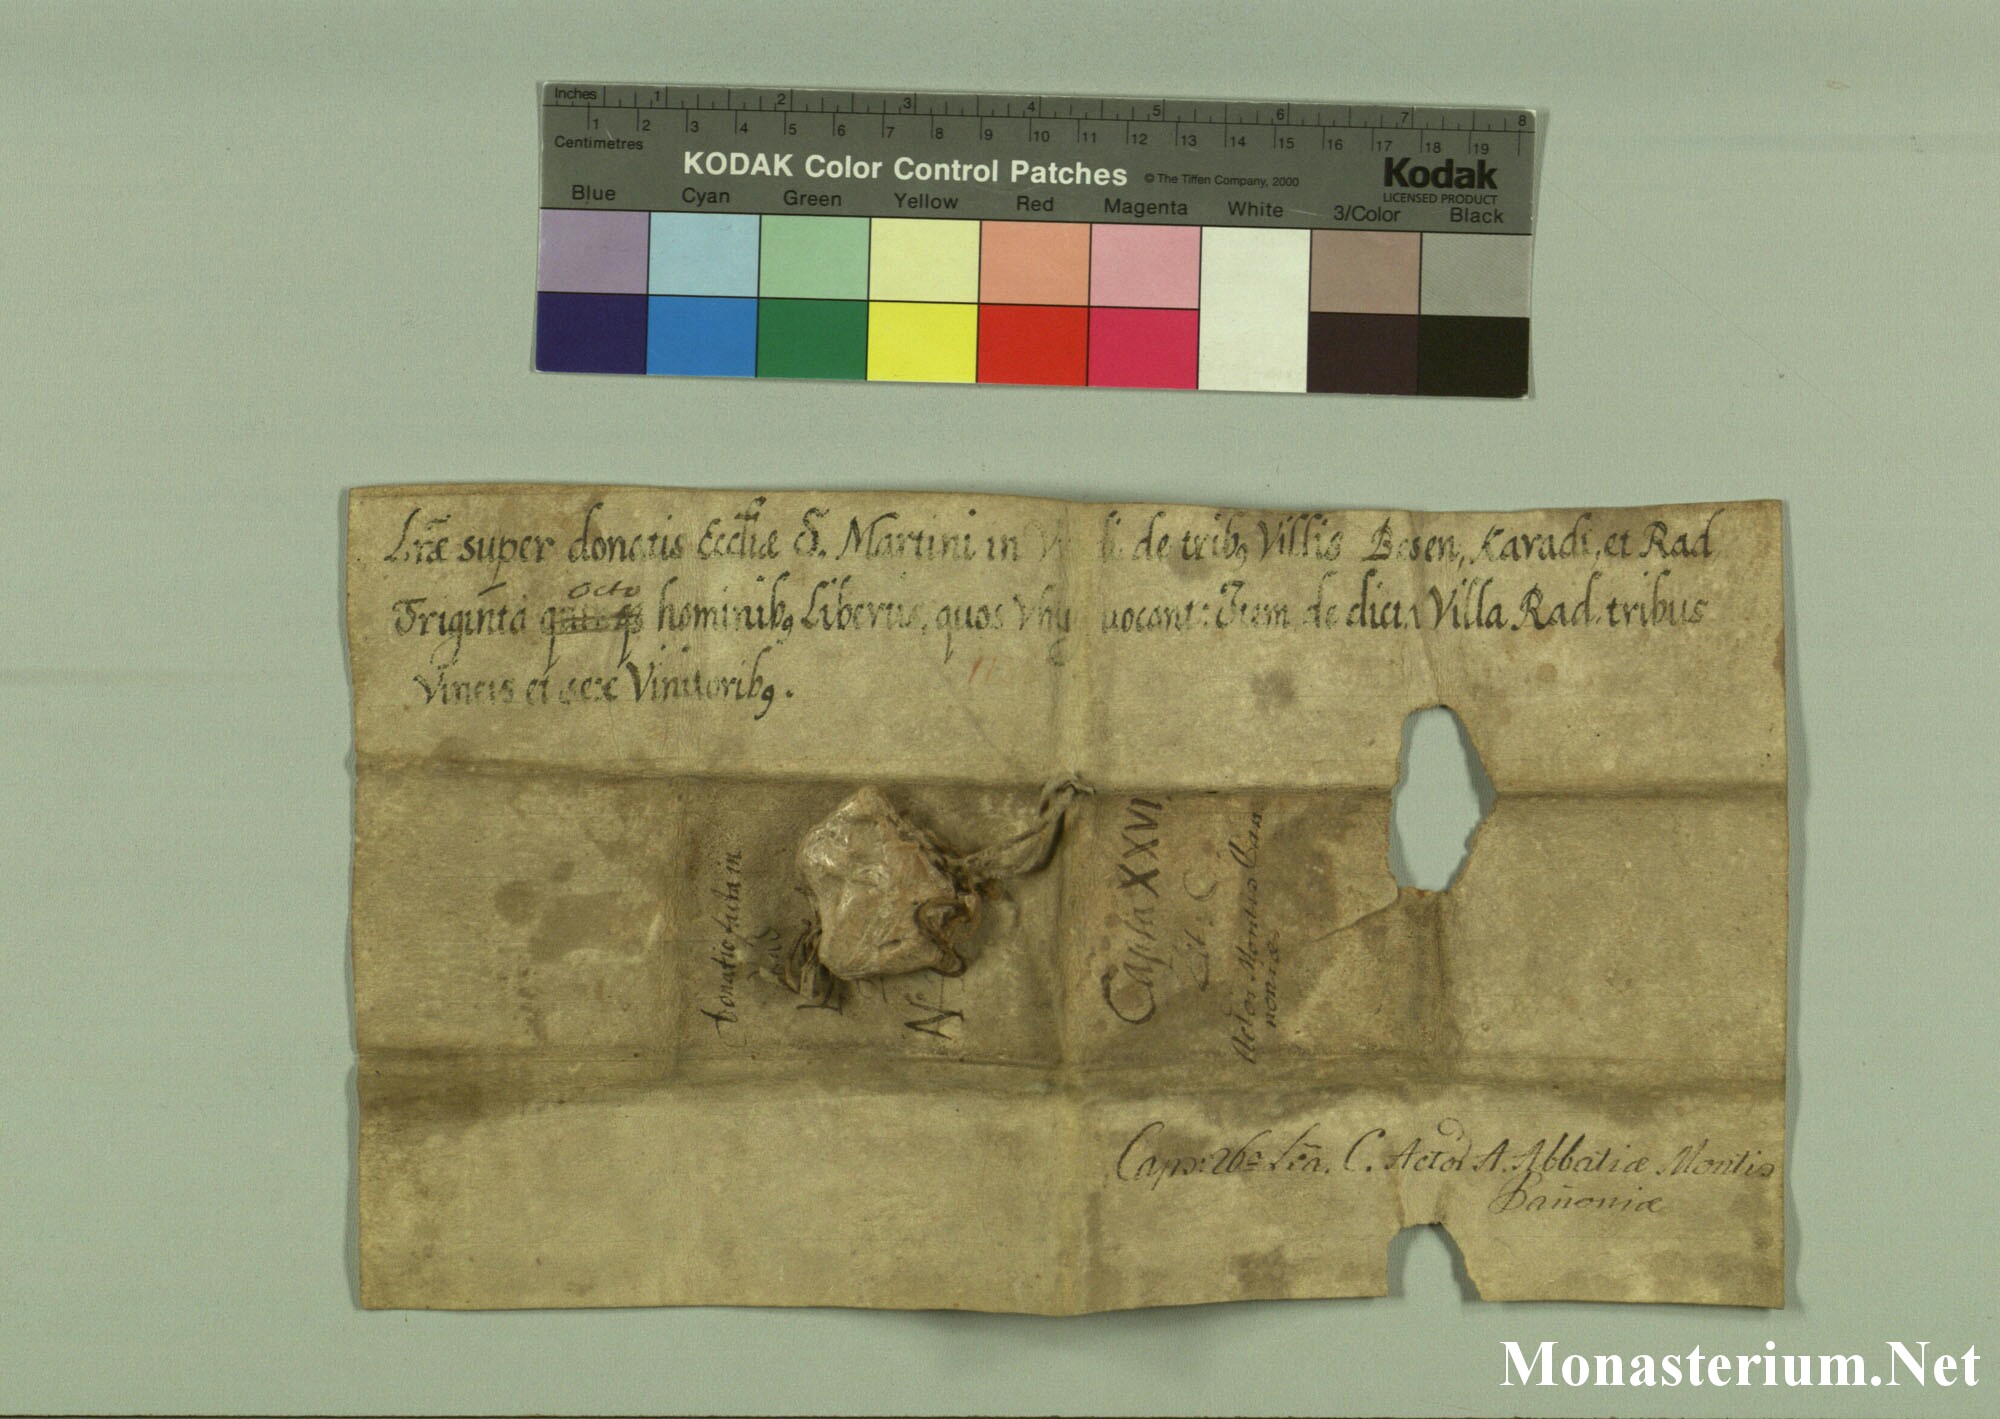 Inches 1 2 3 4 5 6 7 8
1 2 3 4 5 6 7 8 9 10 11 12 13 14 15 16 17 18 19
Centimetres
KODAK Color Control Patches © The Tiffen Company, 2000 Kodak
LICENSED PRODUCT
Blue Cyan Green Yellow Red Magenta White 3/Color Black
Lr̃æ super donatis Eccl̃iæ S. Martini in de trib9 Villis Besen, Karadi, et Rad
octo
Triginta hominib9 Libertis, quos vocant: Item de dicta Villa Rad tribus
Vineis et sex Vinitoribꝯ.
Donatio
N
Capsa XXVI
Lit: C
Actor Montis Pan
noniæ
Caps: 26a Lr̃a. C. Actor A. Abbatiæ Montis
Pañoniæ
Monasterium.Net